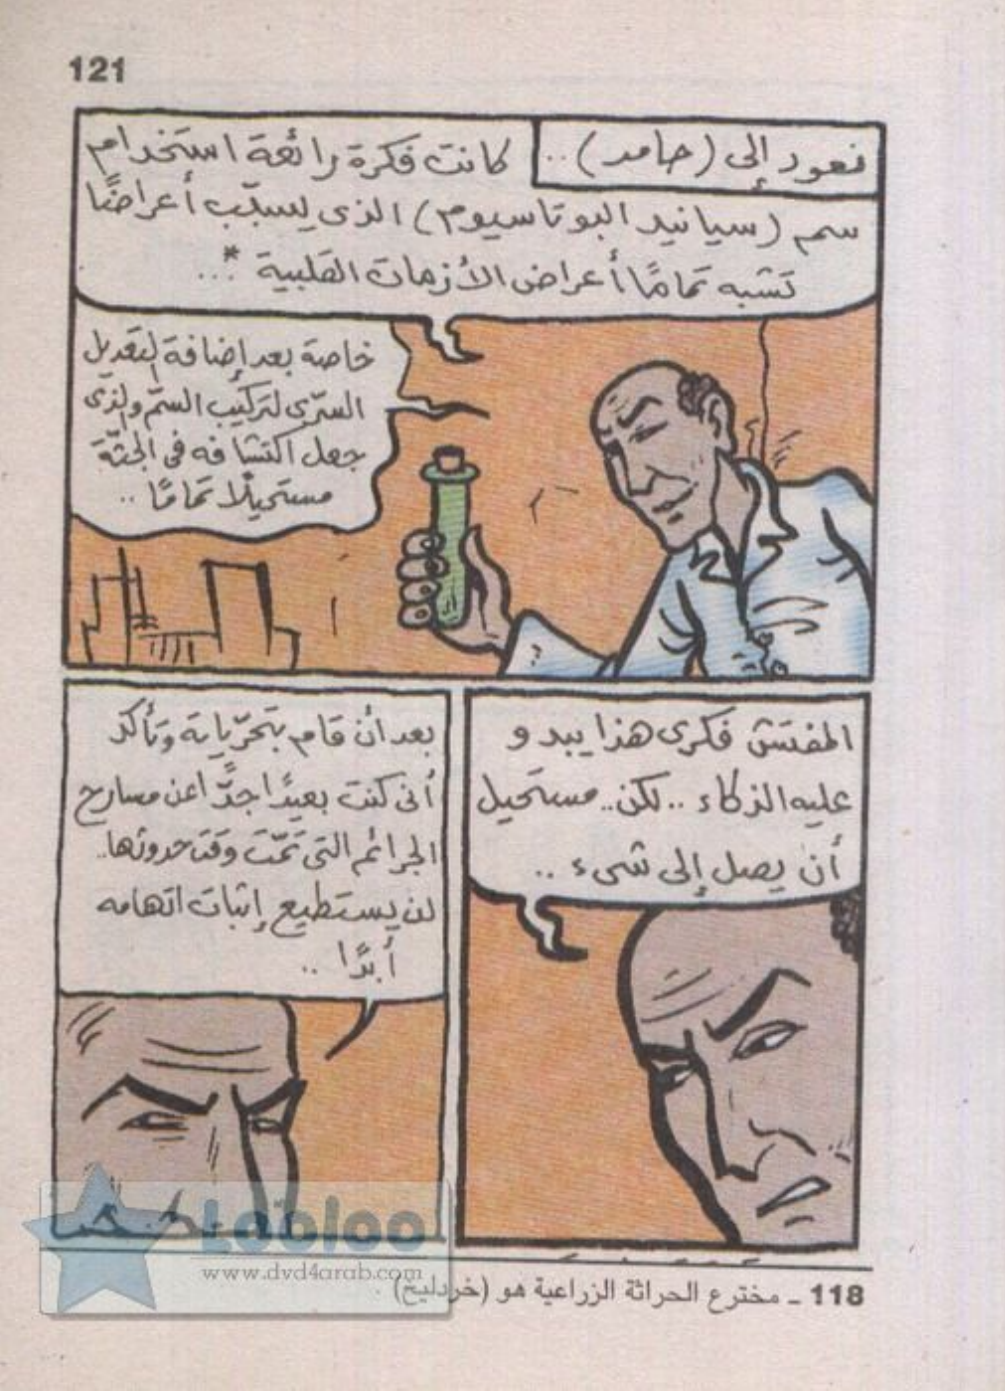 121
نعود إلى (حامد) ..
كانت فكرة رائعة استخدام
سم (سيانيد البوتاسيوم) الذى يسبّب أعراضًا
تشبه تمامًا أعراض الأزمات القلبية * ...
خاصة بعد إضافة التعديل
السرّى لتركيب السمّ والذى
جعل اكتشافه فى الجثّة
مستحيلًا تمامًا ..
المفتش فكرى هذا يبدو
عليه الذكاء .. لكن .. مستحيل
أن يصل إلى شىء ..
بعد أن قام بتحرّياته وتأكد
أنى كنت بعيدًا جدًّا عن مسارح
الجرائم التى تمّت وقت حدوثها ..
لن يستطيع إثبات اتهامه
أبدًا ..
Lobloo
www.dvd4arab.com
118 ـ مخترع الحراثة الزراعية هو (خردليخ) .